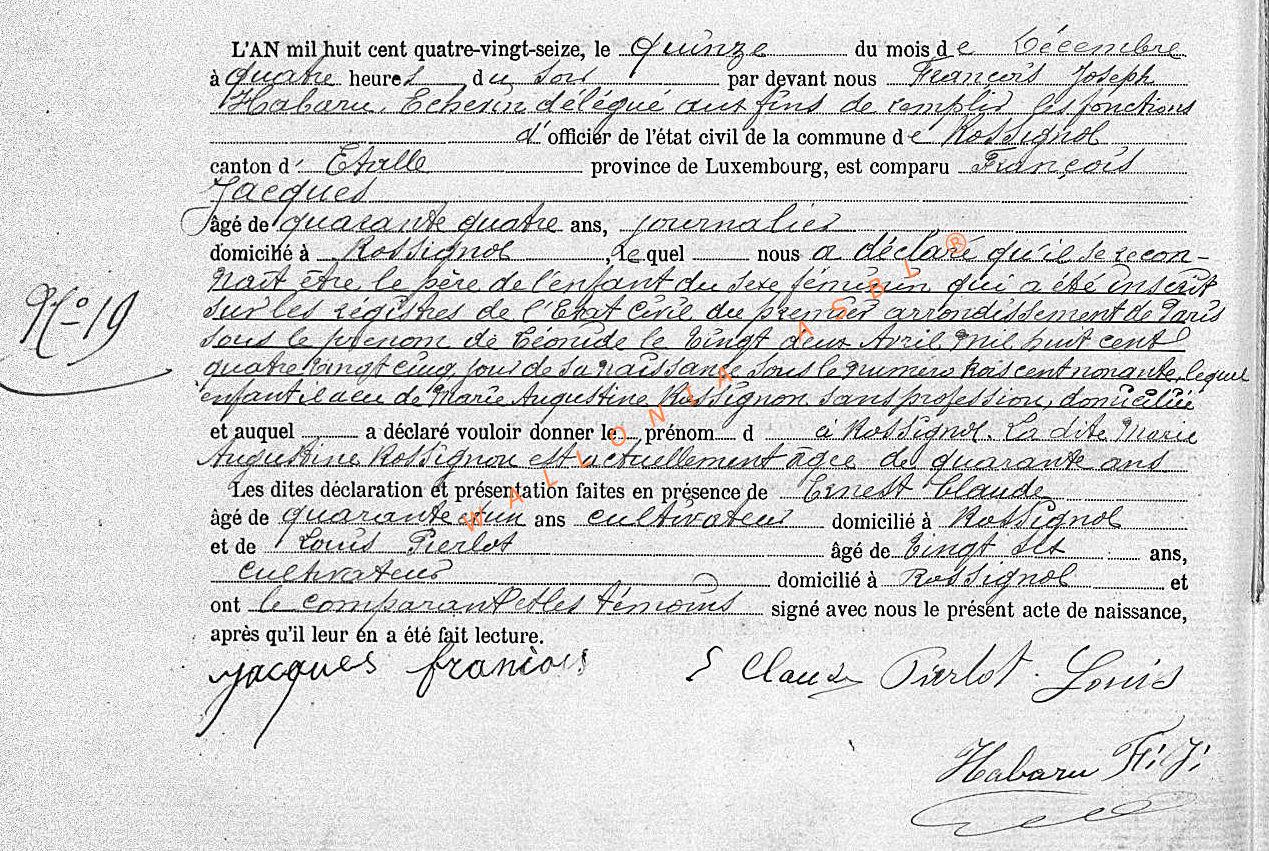 L'AN mil huit cent quatre-vingt-seize, le quinze du mois de Décembre
à quatre heures du soir par devant nous François Joseph
Habaru, Echevin délégué aux fins de remplir les fonctions
d'officier de l'état civil de la commune de Rossignol
canton d' Etalle province de Luxembourg, est comparu François
Jacques
âgé de quarante quatre ans, journalier
domicilié à Rossignol, lequel nous a déclaré qu'il se recon-
naît être le père de l'enfant du sexe féminin qui a été inscrit
sur les régistres de l'Etat civil du premier arrondissement de Paris
sous le prénom de Léonide le vingt deux Avril mil huit cent
quatre vingt cinq jour de sa naissance sous le numéro trois cent nonante, lequel
enfant il a eu de Marie Augustine Rossignon sans profession, domiciliée
et auquel a déclaré vouloir donner le prénom d à Rossignol. La dite Marie
Augustine Rossignon est actuellement âgée de quarante ans
Les dites déclaration et présentation faites en présence de Ernest Claude
âgé de quarante un ans cultivateur domicilié à Rossignol
et de Louis Pierlot âgé de vingt six ans,
cultivateur domicilié à Rossignol et
ont le comparant et les témoins signé avec nous le présent acte de naissance,
après qu'il leur en a été fait lecture.
N° 19
jacques francois E Claude Pierlot Louis
Habaru F. J.
WALLONIA ASBL ®